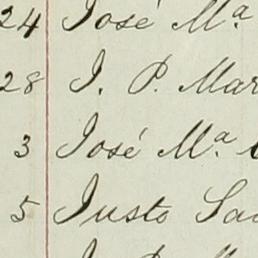 24 José Mª
28 J. P. Mar
3 José Mª.
5 Justo Sa